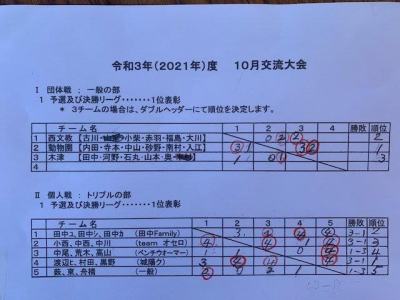 令和3年(2021年)度 10月交流大会
Ⅰ 団体戦:一般の部
1 予選及び決勝リーグ・・・・・・・1位表彰
* 3チームの場合は、ダブルヘッダーにて順位を決定します。
チーム名 1 2 3 勝敗 順位
1 西文教 【古川・小柴・赤羽・福島・大川】 0 2 2
2 動物園 【内田・寺本・中山・砂野・南村・入江】 3 1 3 2 1
3 木津 【田中・河野・石丸・山本・奥・】 1 0 1 3
Ⅱ 個人戦:トリプルの部
1 予選及び決勝リーグ・・・・・・・1位表彰
チーム名 1 2 3 4 5 勝敗 順位
1 田中ユ、田中シ、田中カ (田中Family) 3 1 4 4 3-1 2
2 小西、中西、中川 (team オセロ) 4 4 1 3
3 中尾、荒木、高山 (ベンチウオーマー) 1 0 4
4 渡辺ヒ、村田、黒野 (城陽ク) 3 4 4 4 3-1 1
5 薮、東、舟積 (一般) 2 0 2 1 1-3 5